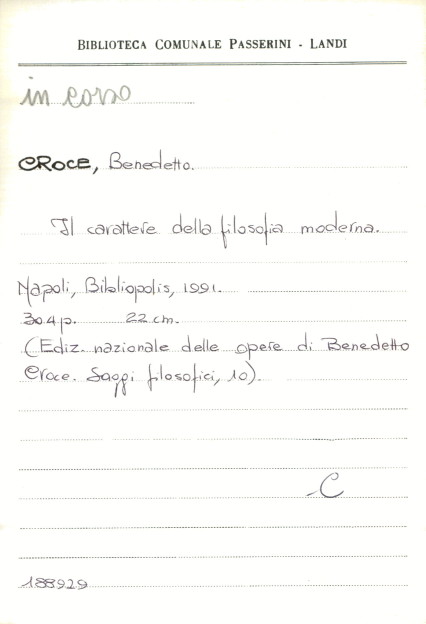 BIBLIOTECA COMUNALE PASSERINI - LANDI
in corso
CROCE, Benedetto.
Il carattere della filosofia moderna.
Napoli, Bibliopolis, 1991.
304 p. 22 cm.
(Ediz. nazionale delle opere di Benedetto
Croce. Saggi filosofici, 10).
C
188929